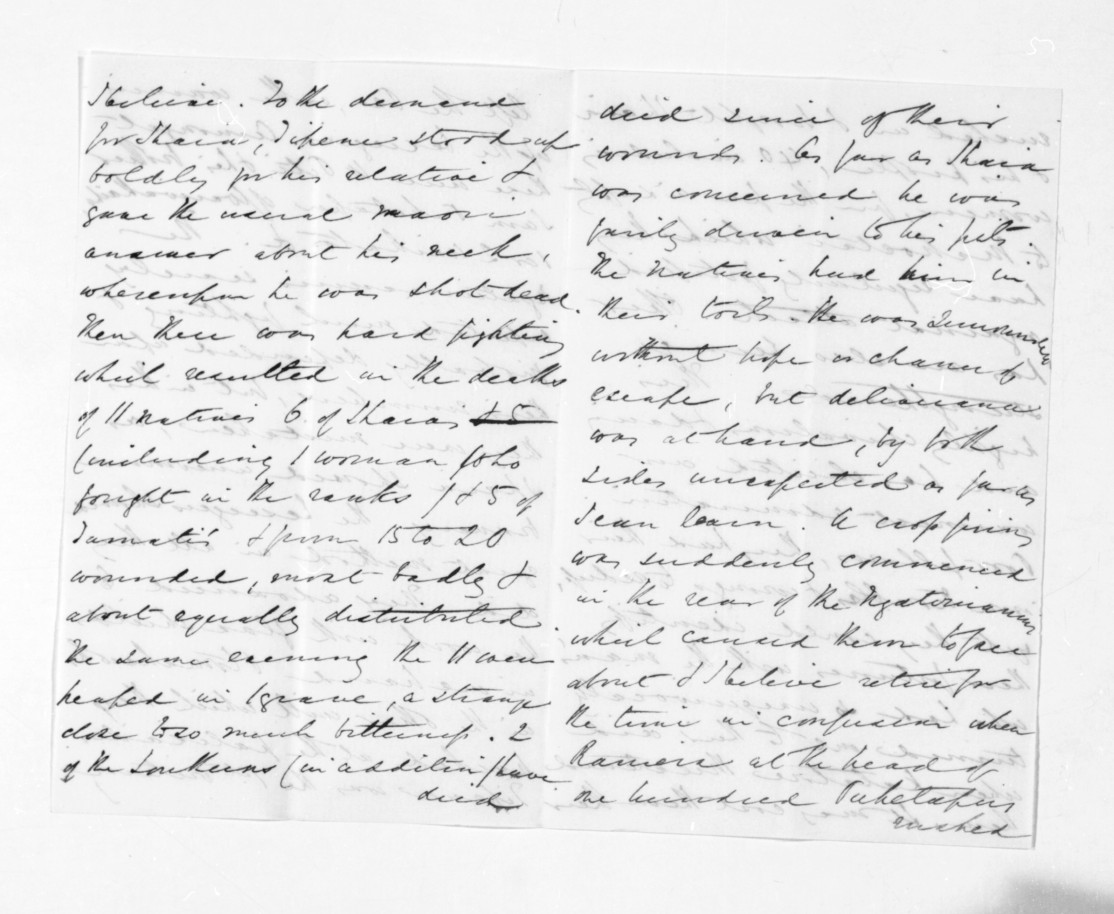 I believe. To the demand
for Ihaia, Tipene stood up
boldly for his relative &
gave the usual maori
answer about his neck,
whereupon he was shot dead.
Then there was hard fighting
which resulted in the deaths
of 11 natives 6 of Ihaias & 5
(including 1 woman who
fought in the ranks) & 5 of
Tamatis & from 15 to 20
wounded, most badly &
about equally distributed.
The same evening the 11 were
heaped in 1 grave, a strange
close to so much bitterness. 2
of the Southerns (in addition) have
died
died since of their
wounds. As far as Ihaia
was concerned he was
fairly driven to his pits.
The natives had him in
their toils. He was surrounded
without hope or chance of
escape, but deliverance
was at hand, by both
sides unexpected as far as
I can learn. A cross firing
was suddenly commenced
in the rear of the Ngatiruanuis
which caused them to face
about & I believe retire for
the time in confusion when
at the head of
one hundred Puketapus
rushed